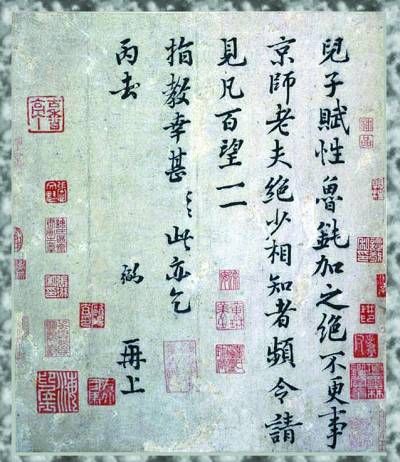 兒子賦性魯鈍加之絕不更事
京師老夫絕少相知者頻令請
見凡百望一一
指教幸甚々此亦乞
丙去 弼 再上